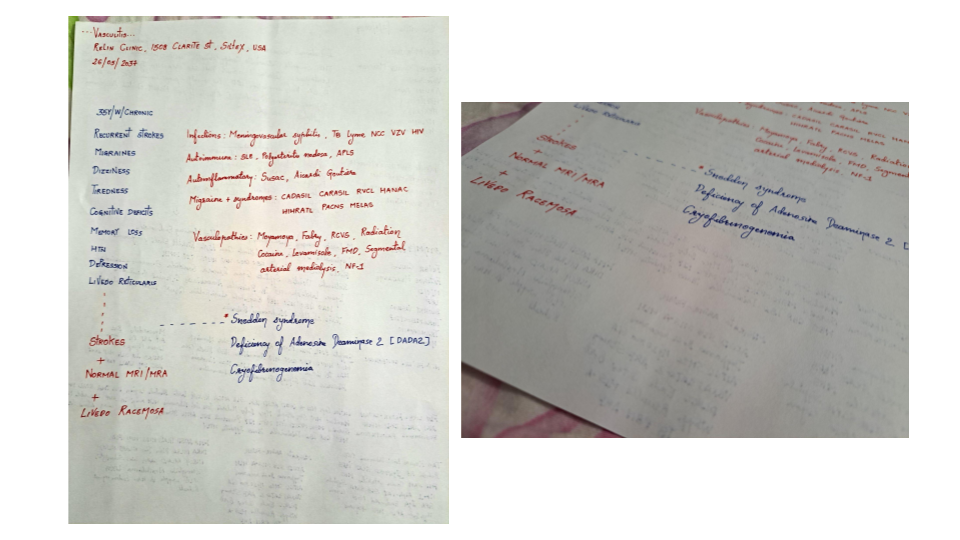 ...Vasculitis...
Relin Clinic, 1508 Clarite St, Siltex, USA
26/05/2037
35Y/W/Chronic
Recurrent Strokes
Migraines
Dizziness
Tiredness
Cognitive Deficits
Memory Loss
HTN
Depression
Livedo Reticularis
Infections: Meningovascular syphilis, TB Lyme NCC VZV HIV
Autoimmune: SLE, Polyarteritis nodosa, APLS
Autoinflammatory: Susac, Aicardi Goutière
Migraine + syndromes: CADASIL CARASIL RVCL HANAC
HIHRATL PACNS MELAS
Vasculopathies: Moyamoya, Fabry, RCVS, Radiation
Cocaine, Levamisole, FMD, Segmental
arterial mediolysis, NF-1
Strokes
+
Normal MRI/MRA
+
Livedo Racemosa
* Sneddon syndrome
Deficiency of Adenosine Deaminase 2 [DADA2]
Cryofibrinogenemia
Livedo Reticularis
Strokes
+
Normal MRI/MRA
+
Livedo Racemosa
CADASIL CARASIL RVCL HANAC
HIHRATL PACNS MELAS
Vasculopathies: Moyamoya, Fabry, RCVS, Radiation
Cocaine, Levamisole, FMD, Segment
arterial mediolysis, NF-1
* Sneddon syndrome
Deficiency of Adenosine Deaminase 2 [
Cryofibrinogenemia